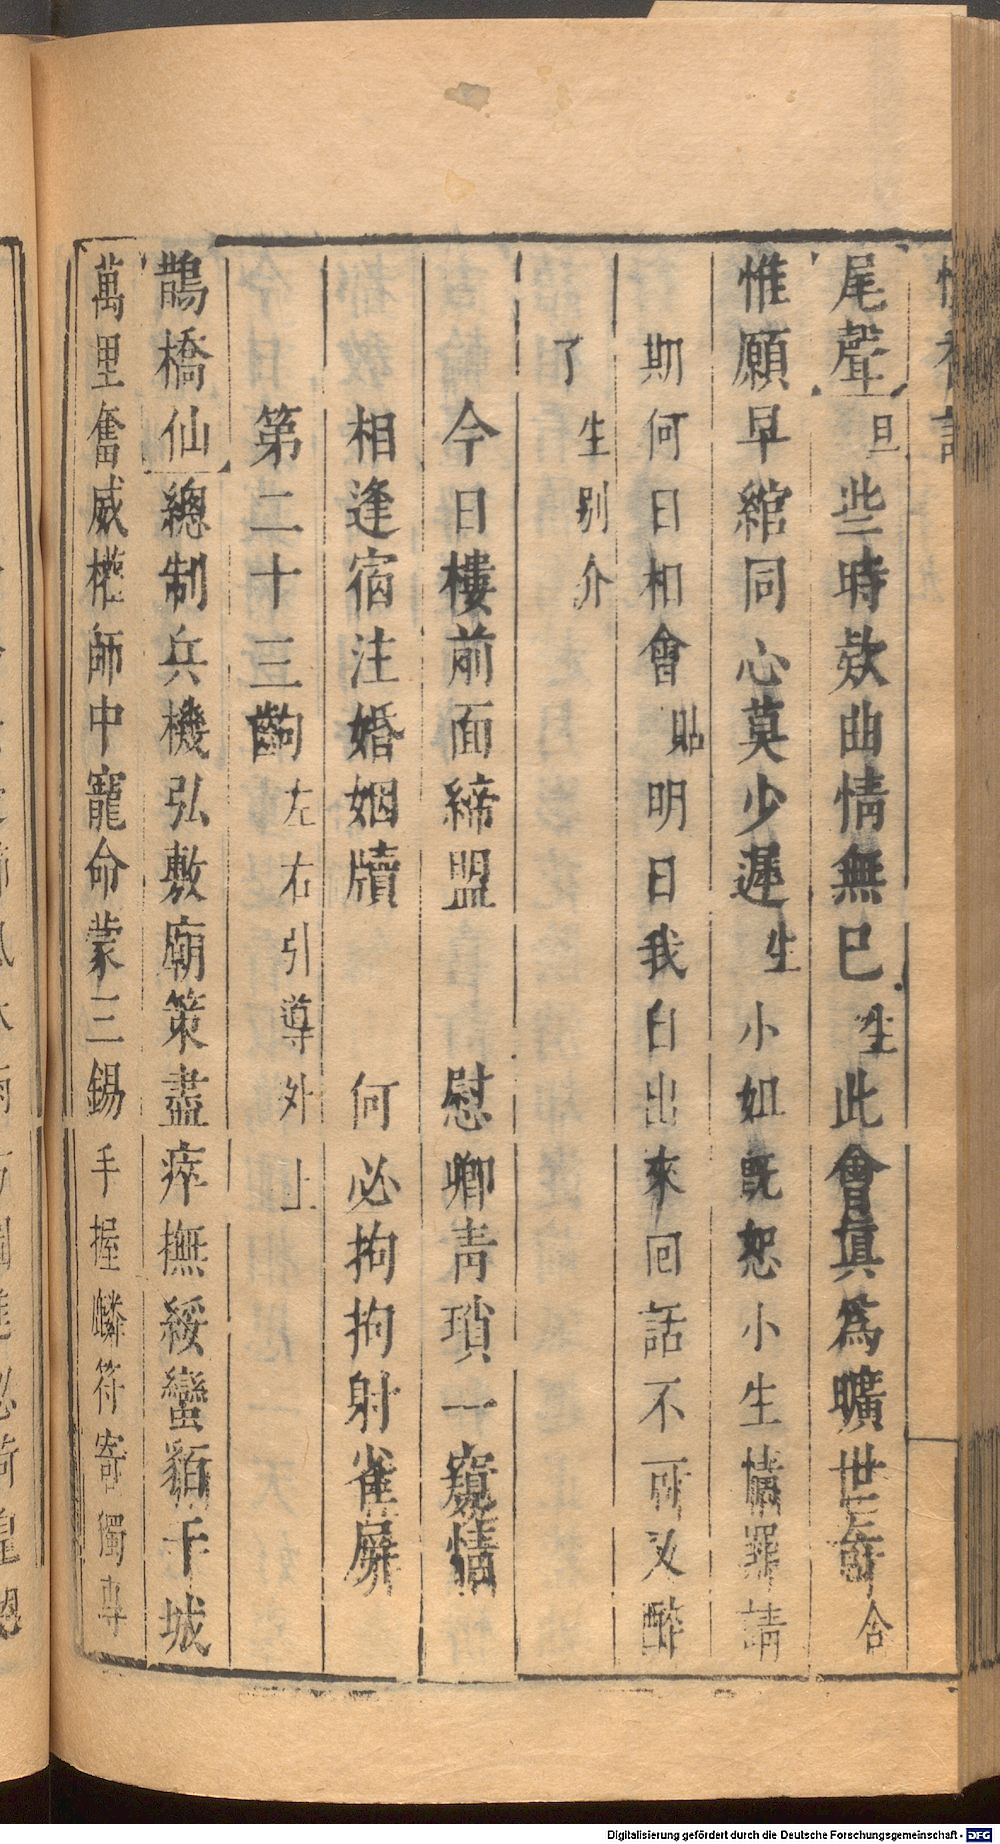 懷香記
尾聲 旦 些時欵曲情無已 生 此會眞爲曠世奇 合
惟願早綰同心莫少遲 生 小姐旣恕小生情罪請
期何日相會 貼 明日我自出來回話不可又醉
了 生 別介
今日樓前面締盟 慰卿靑瑣一窺情
相逢宿注婚姻牘 何必拘拘射雀屏
第二十三齣 左右引導外上
鵲橋仙 總制兵機弘敷廟策盡瘁撫綏蠻貊干城
萬里奮威權師中寵命蒙三錫 手握麟符寄獨專
Digitalisierung gefördert durch die Deutsche Forschungsgemeinschaft - DFG